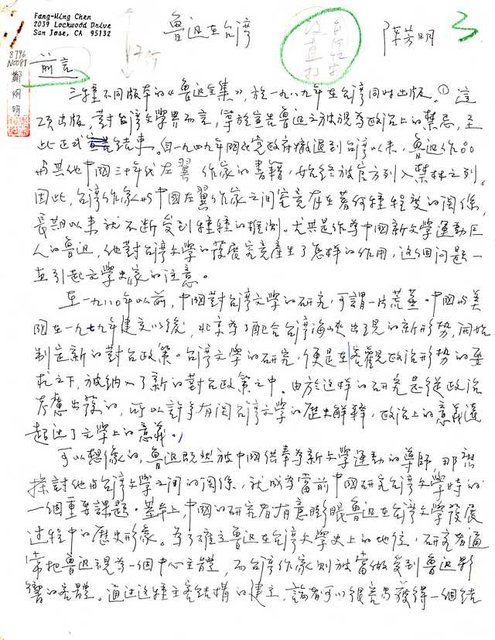 Fang-Ming Chen
2039 Lockwood Drive
San Jose, CA 95132
魯迅在台灣
陳芳明
前言
三種不同版本的《魯迅全集》，於一九八九年在台灣同時出版。①這
項出版，對台灣文學界而言，等於宣告魯迅之被視為政治上的禁忌，至
此正式結束。自一九四九年國民黨政府撤退到台灣以來，魯迅作品
與其他中國三十年代左翼作家的書籍，始終被官方列入禁林之列。
因此，台灣作家與中國左翼作家之間究竟存在著何種程度的關係，
長期以來就不斷受到種種的推測。尤其是作為中國新文學運動巨
人的魯迅，他對台灣文學的發展究竟產生了怎樣的作用，這個問題一
直引起文學史家的注意。
至一九八〇年以前，中國對台灣文學的研究，可謂一片荒蕪。中國與美
國在一九七九年建交以後，北京為了配合台灣海峽出現的新形勢，開始
制定新的對台政策。台灣文學的研究，便是在客觀政治形勢的要
求之下，被納入了新的對台政策之中。由於這樣的研究是從政治
考慮出發的，所以許多有關台灣文學的歷史解釋，政治上的意義遠
超過了文學上的意義。
可以想像的，魯迅既然被中國供奉為新文學運動的導師，那麼
探討他與台灣文學之間的關係，就成為當前中國研究台灣文學時的
一個重要課題。基本上，中國的研究者有意膨脹魯迅在台灣文學發展
過程中的歷史形象。為了確立魯迅在台灣文學史上的地位，研究者通
常把魯迅視為一個中心主體，而台灣作家則被當做受到魯迅影
響的客體。通過這種主客結構的建立，論者可以很容易獲得一個結